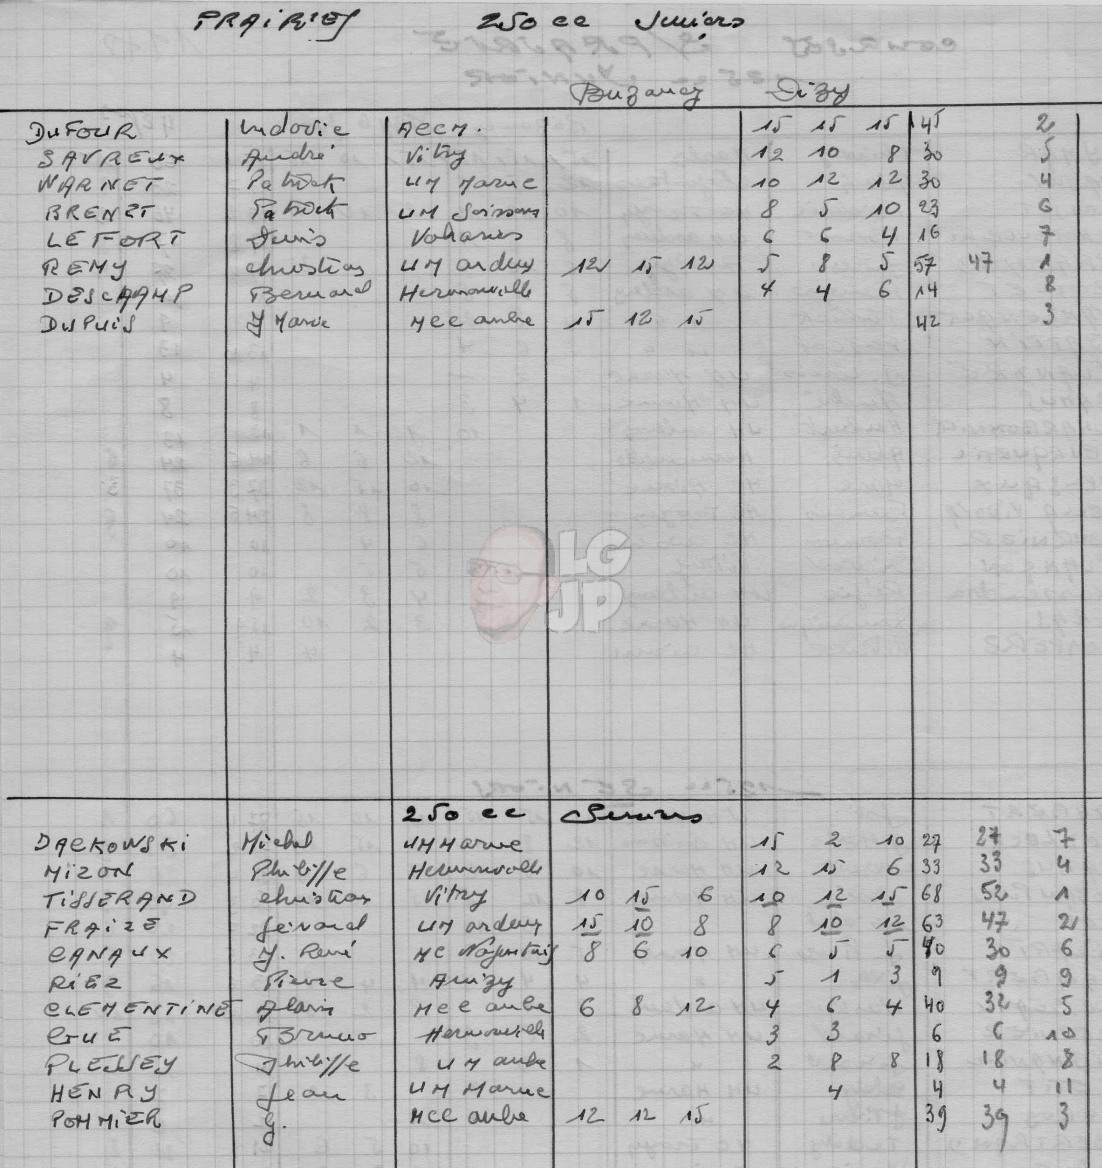 PRAIRIES 250 cc Juniors
Buzancy Dizy
DUFOUR Ludovic AECM. 15 15 15 45 2
SAVREUX André Vitry 12 10 8 30 5
WARNET Patrick UM Marne 10 12 12 30 4
BRENET Patrick UM Soissons 8 5 10 23 6
LEFORT Denis 6 6 4 16 7
REMY Christian UM Ardens 12 15 12 5 8 5 57 47 1
DESCHAMP Bernard Hermonville 4 4 6 14 8
DUPUIS J Marie MCC aube 15 12 15 42 3
LG JP
250 cc Seniors
DACKOWSKI Michel UM Marne 15 2 10 27 27 7
MIZON Philippe Hermonville 12 15 6 33 33 4
TISSERAND Christian Vitry 10 15 6 10 12 15 68 52 1
FRAIZE Gérard UM Ardens 15 10 8 8 10 12 63 47 2
CANAUX J. René MC 8 6 10 6 5 5 40 30 6
RIEZ Pierre Anizy 5 1 3 9 9 9
CLEMENTINE Alain MCC aube 6 8 12 4 6 4 40 32 5
CUE Bruno Hermonville 3 3 6 6 10
PLESSEY Philippe UM aube 2 8 8 18 18 8
HENRY Jean UM Marne 4 4 4 11
POMMIER G. MCC aube 12 12 15 39 39 3